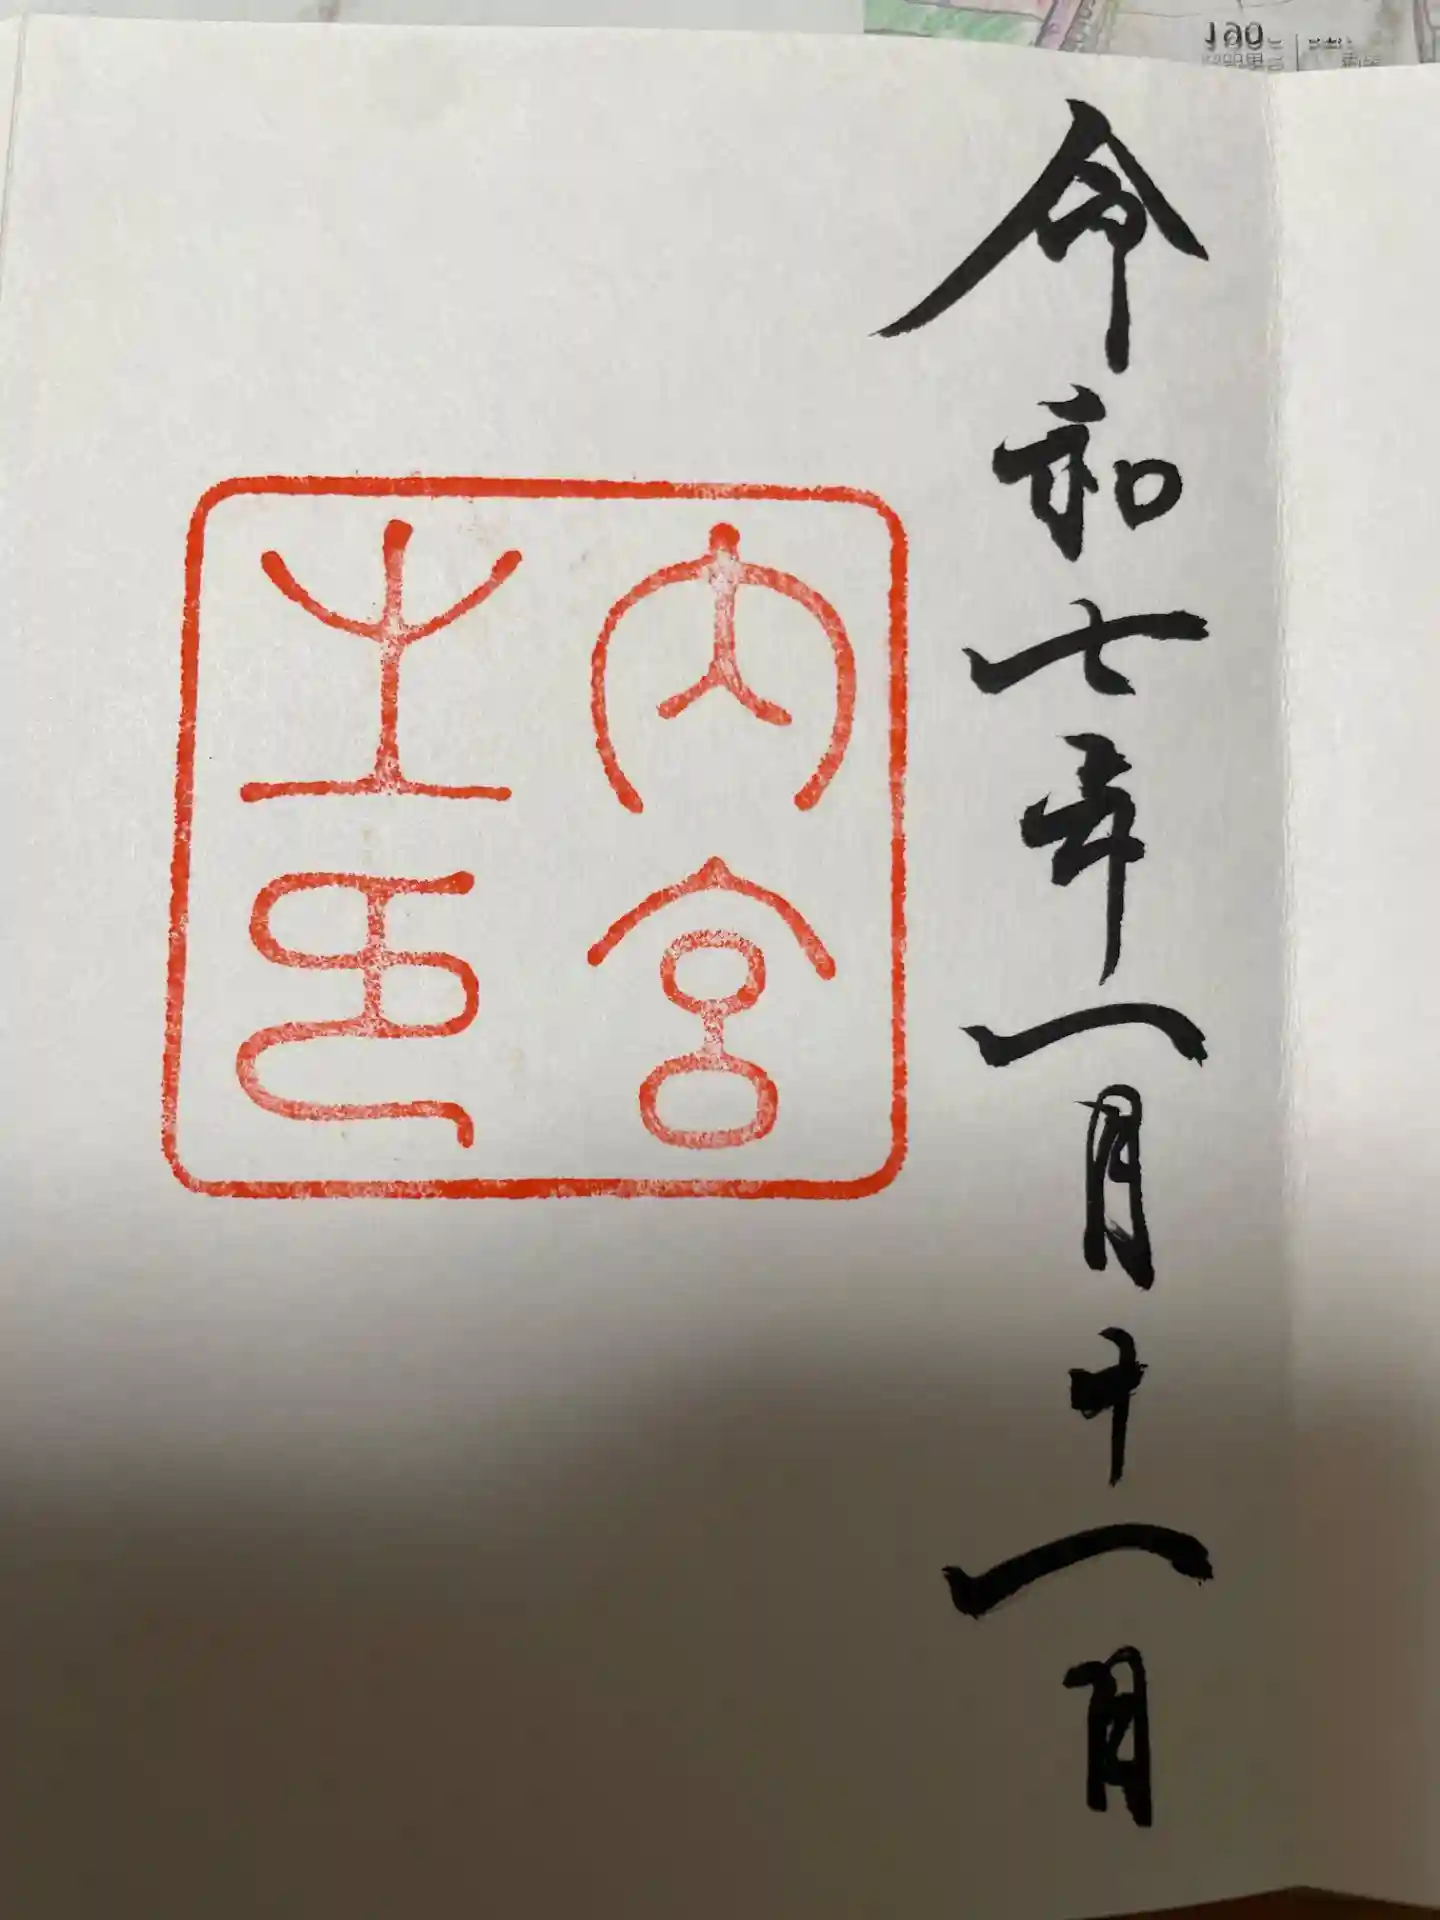 令和七年一月十一日
内宮
之印
190